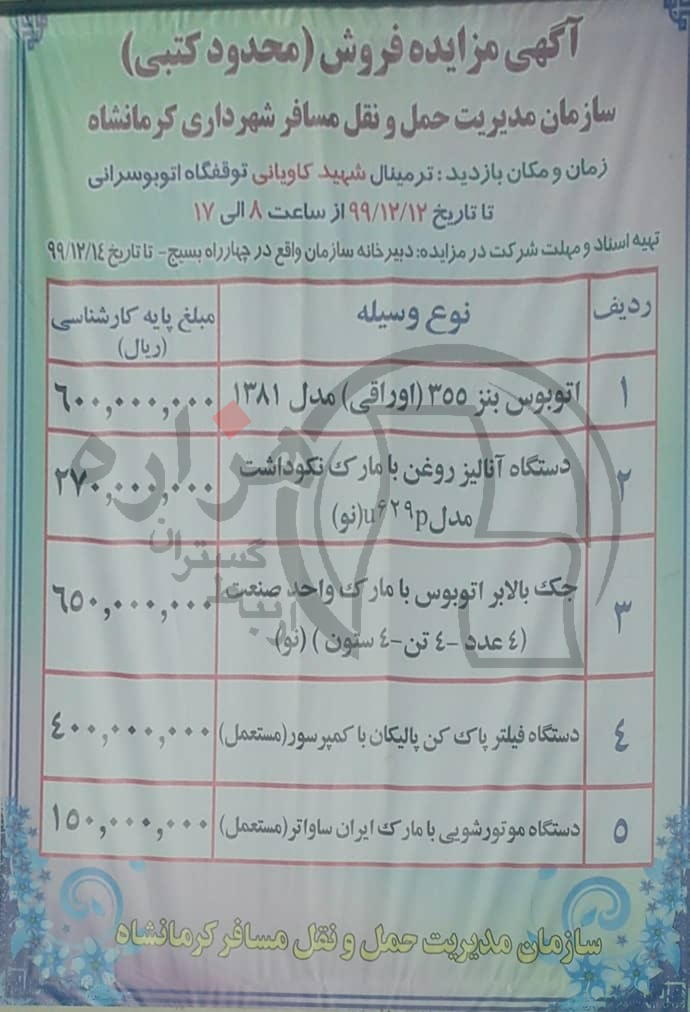 آگهی مزایده فروش (محدود کتبی)
سازمان مدیریت حمل و نقل مسافر شهرداری کرمانشاه
زمان و مکان بازدید : ترمینال شهید کاویانی توقفگاه اتوبوسرانی
تا تاریخ ۹۹/۱۲/۱۲ از ساعت ۸ الی ۱۷
تهیه اسناد و مهلت شرکت در مزایده: دبیرخانه سازمان واقع در چهارراه بسیج- تا تاریخ ۹۹/۱۲/۱۴
ردیف نوع وسیله مبلغ پایه کارشناسی
(ریال)
۱ اتوبوس بنز ۳۵۵ (اوراقی) مدل ۱۳۸۱ ۶۰۰,۰۰۰,۰۰۰
۲ دستگاه آنالیز روغن با مارک نکوداشت ۲۷۰,۰۰۰,۰۰۰
مدل u۶۲۹p(نو)
۳ جک بالابر اتوبوس با مارک واحد صنعت ۶۵۰,۰۰۰,۰۰۰
(٤ عدد -٤ تن-٤ ستون ) (نو)
٤ دستگاه فیلتر پاک کن پالیکان با کمپرسور(مستعمل) ٤۰۰,۰۰۰,۰۰۰
۵ دستگاه موتورشویی با مارک ایران ساواتر(مستعمل) ۱۵۰,۰۰۰,۰۰۰
هزاره
گستران
ارتباط
سازمان مدیریت حمل و نقل مسافر کرمانشاه